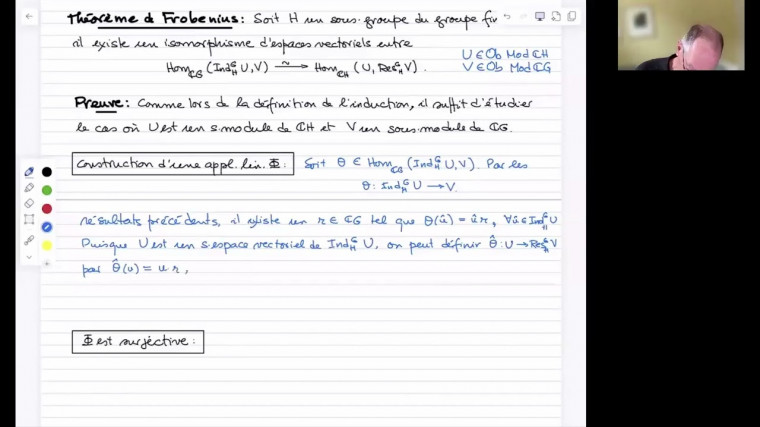 Théorème d Frobenius: Soit H un sous-groupe du groupe fi
il existe un isomorphisme d'espaces vectoriels entre
Hom_ℂG (Ind_H^G U, V) ⥲ Hom_ℂH (U, Res_H^G V).
U ∈ Ob Mod ℂH
V ∈ Ob Mod ℂG
Preuve: Comme lors de la définition de l'induction, il suffit d'étudier
le cas où U est un s-module de ℂH et V un sous-module de ℂG.
Construction d'une appl. lin. Φ: Soit θ ∈ Hom_ℂG (Ind_H^G U, V). Par les
θ: Ind_H^G U → V.
résultats précédents, il existe un r ∈ ℂG tel que θ(û) = û r, ∀û ∈ Ind_H^G U
Puisque U est un s-espace vectoriel de Ind_H^G U, on peut définir θ̂: U → Res_H^G V
par θ̂(u) = u r,
Φ est surjective: